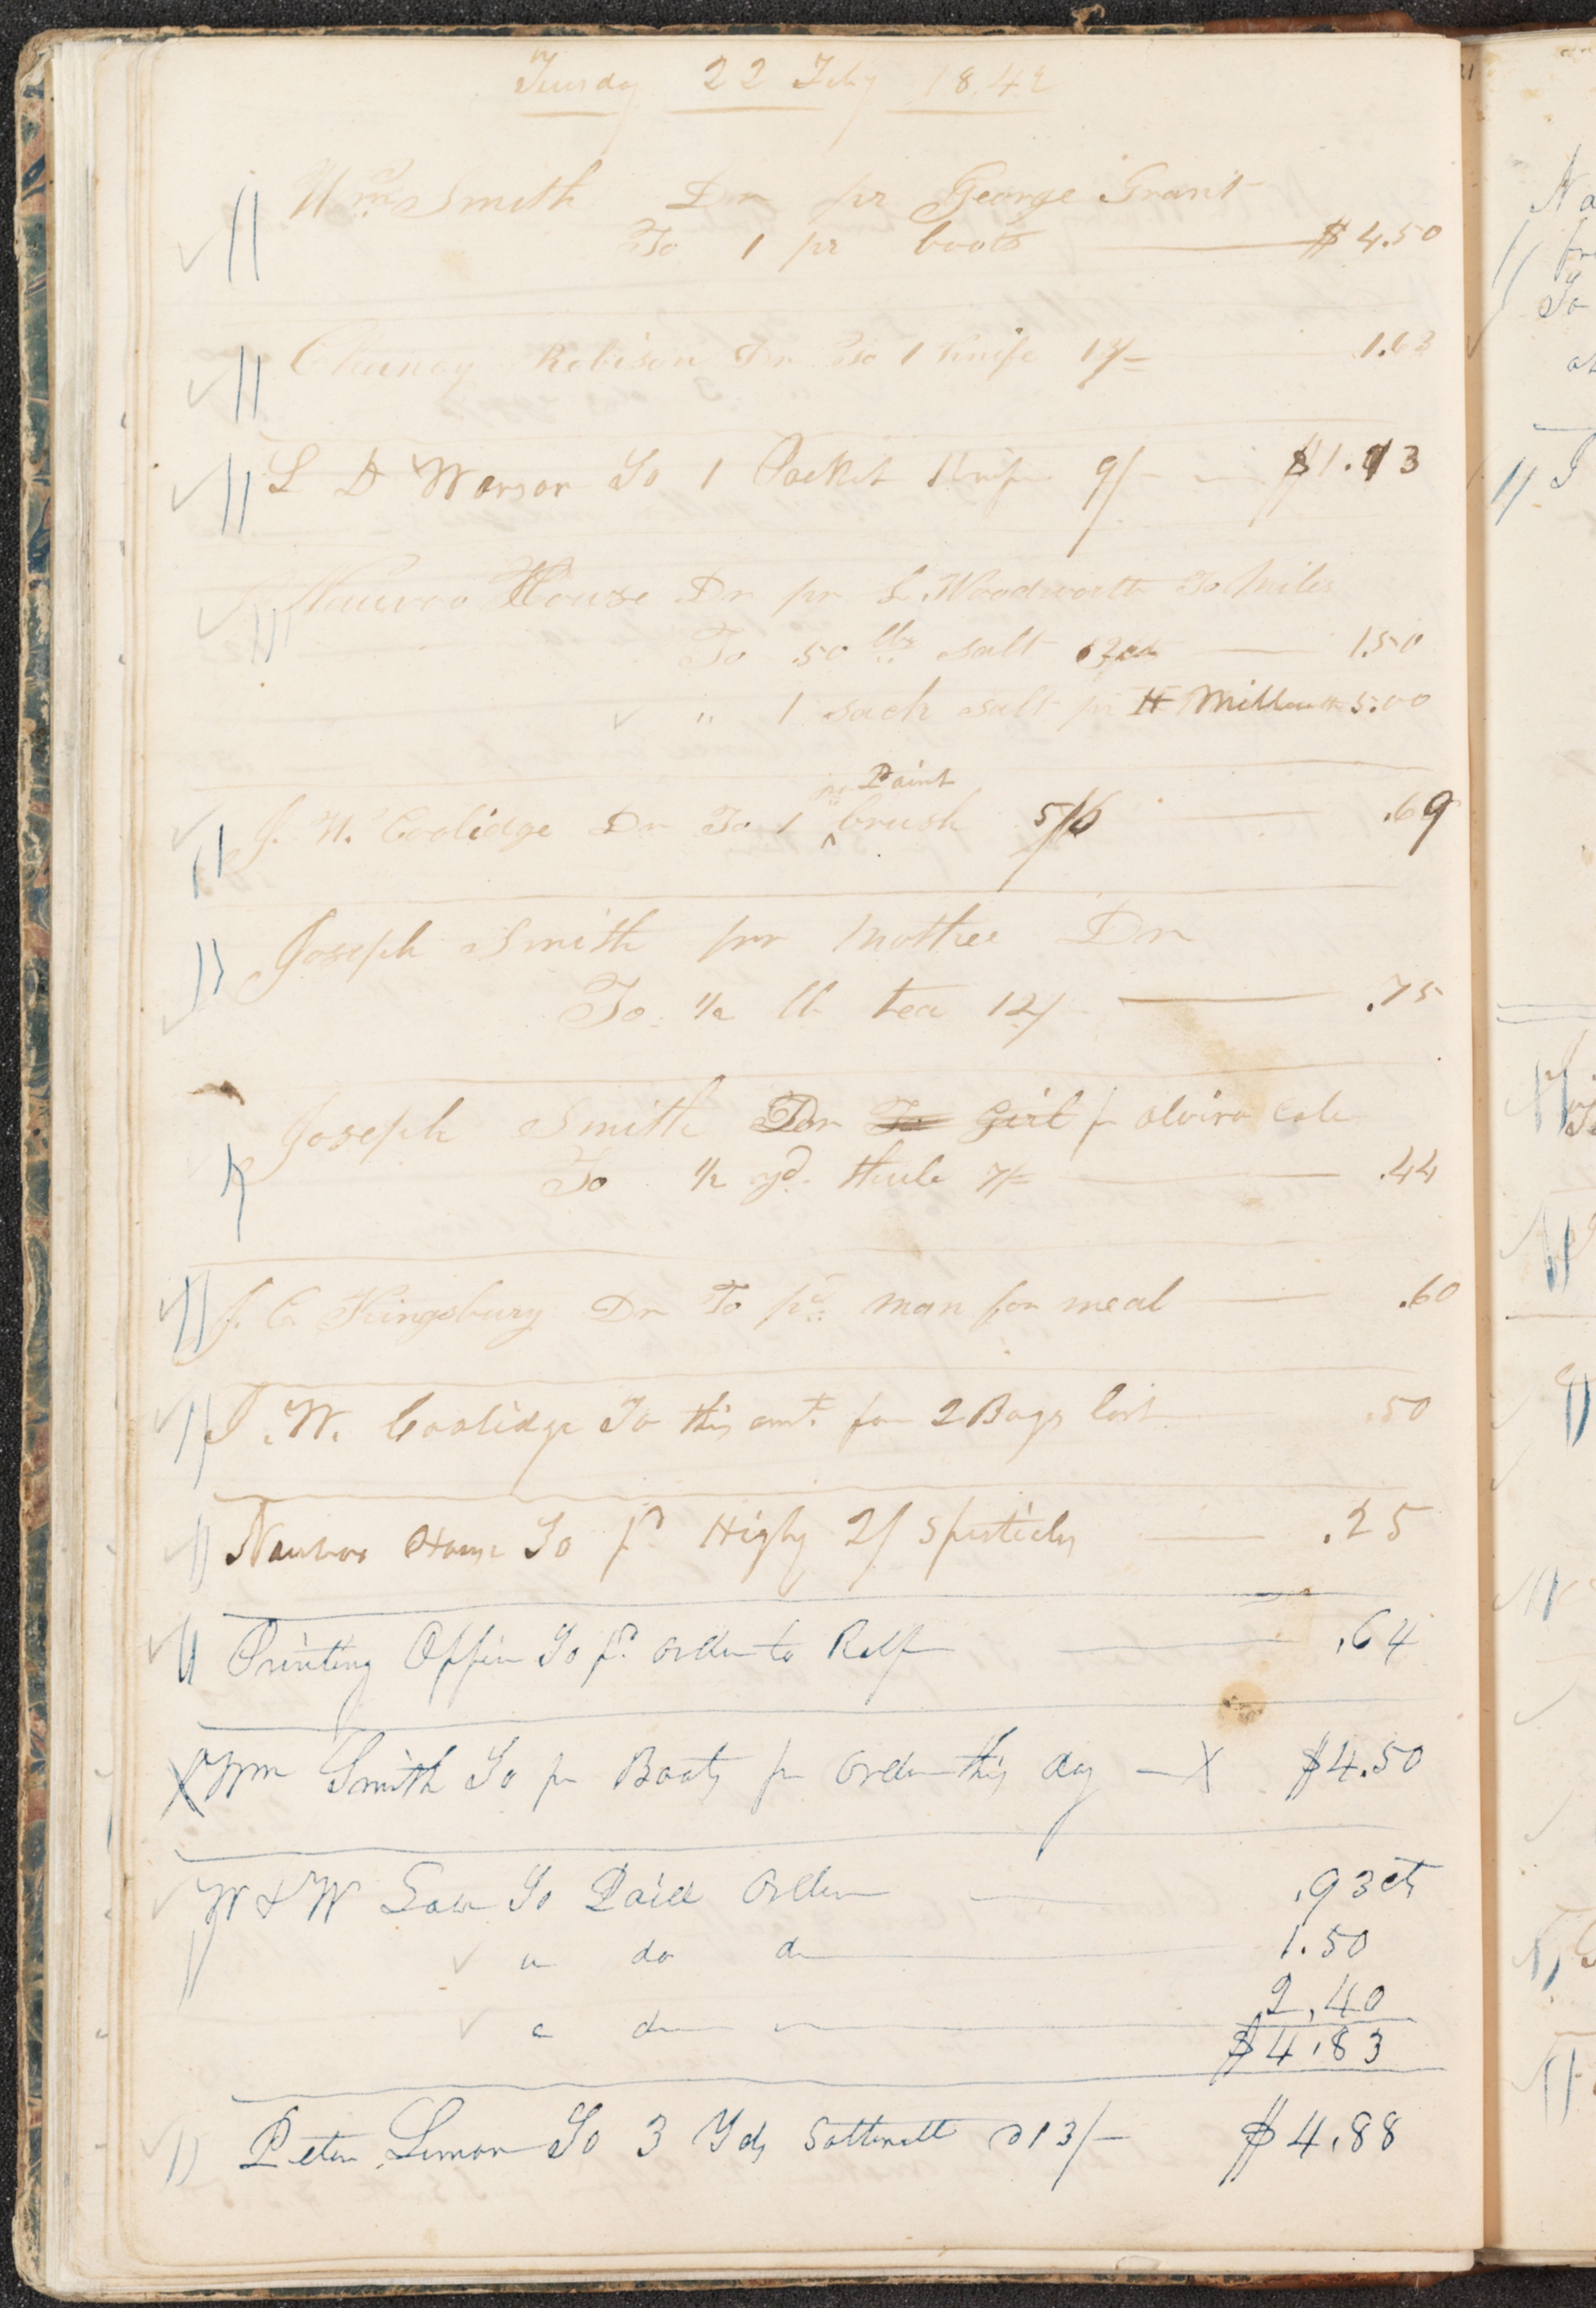 Tuesday 22 Feby 1842
Wm Smith Dr pr George Grant
To 1 pr boots $4.50
Chancy Robison Dr To 1 knife 13/- 1.63
L D Wasson To 1 Pocket Knife 9/- $1.13
Nauvoo House Dr pr L. Woodworth To Miles
To 50 lbs salt 3cts 1.50
" 1 sack salt pr H 5.00
pr Paint
J. W. Coolidge Dr To 1 ^ brush 5/6 .69
Joseph Smith pr Mother Dr
To 1/2 lb tea 12/ .75
Joseph Smith Dr To Girl pr Alvira Cole
To 1/2 yd. 7/- .44
J. E. Kingsbury Dr To pd man for meal .60
J. W. Coolidge To this amt. for 2 Bags lost .50
Nauvoo House To pd Higby 2/ .25
Printing Office To pd. order to Rolf .64
X Wm Smith To pr Boots pr order this day — X $4.50
W & W Law To Paid Order .93cts
" do do 1.50
" do 2.40
$4.83
Peter Lemon To 3 Yds Sattinett @ 13/- $4.88